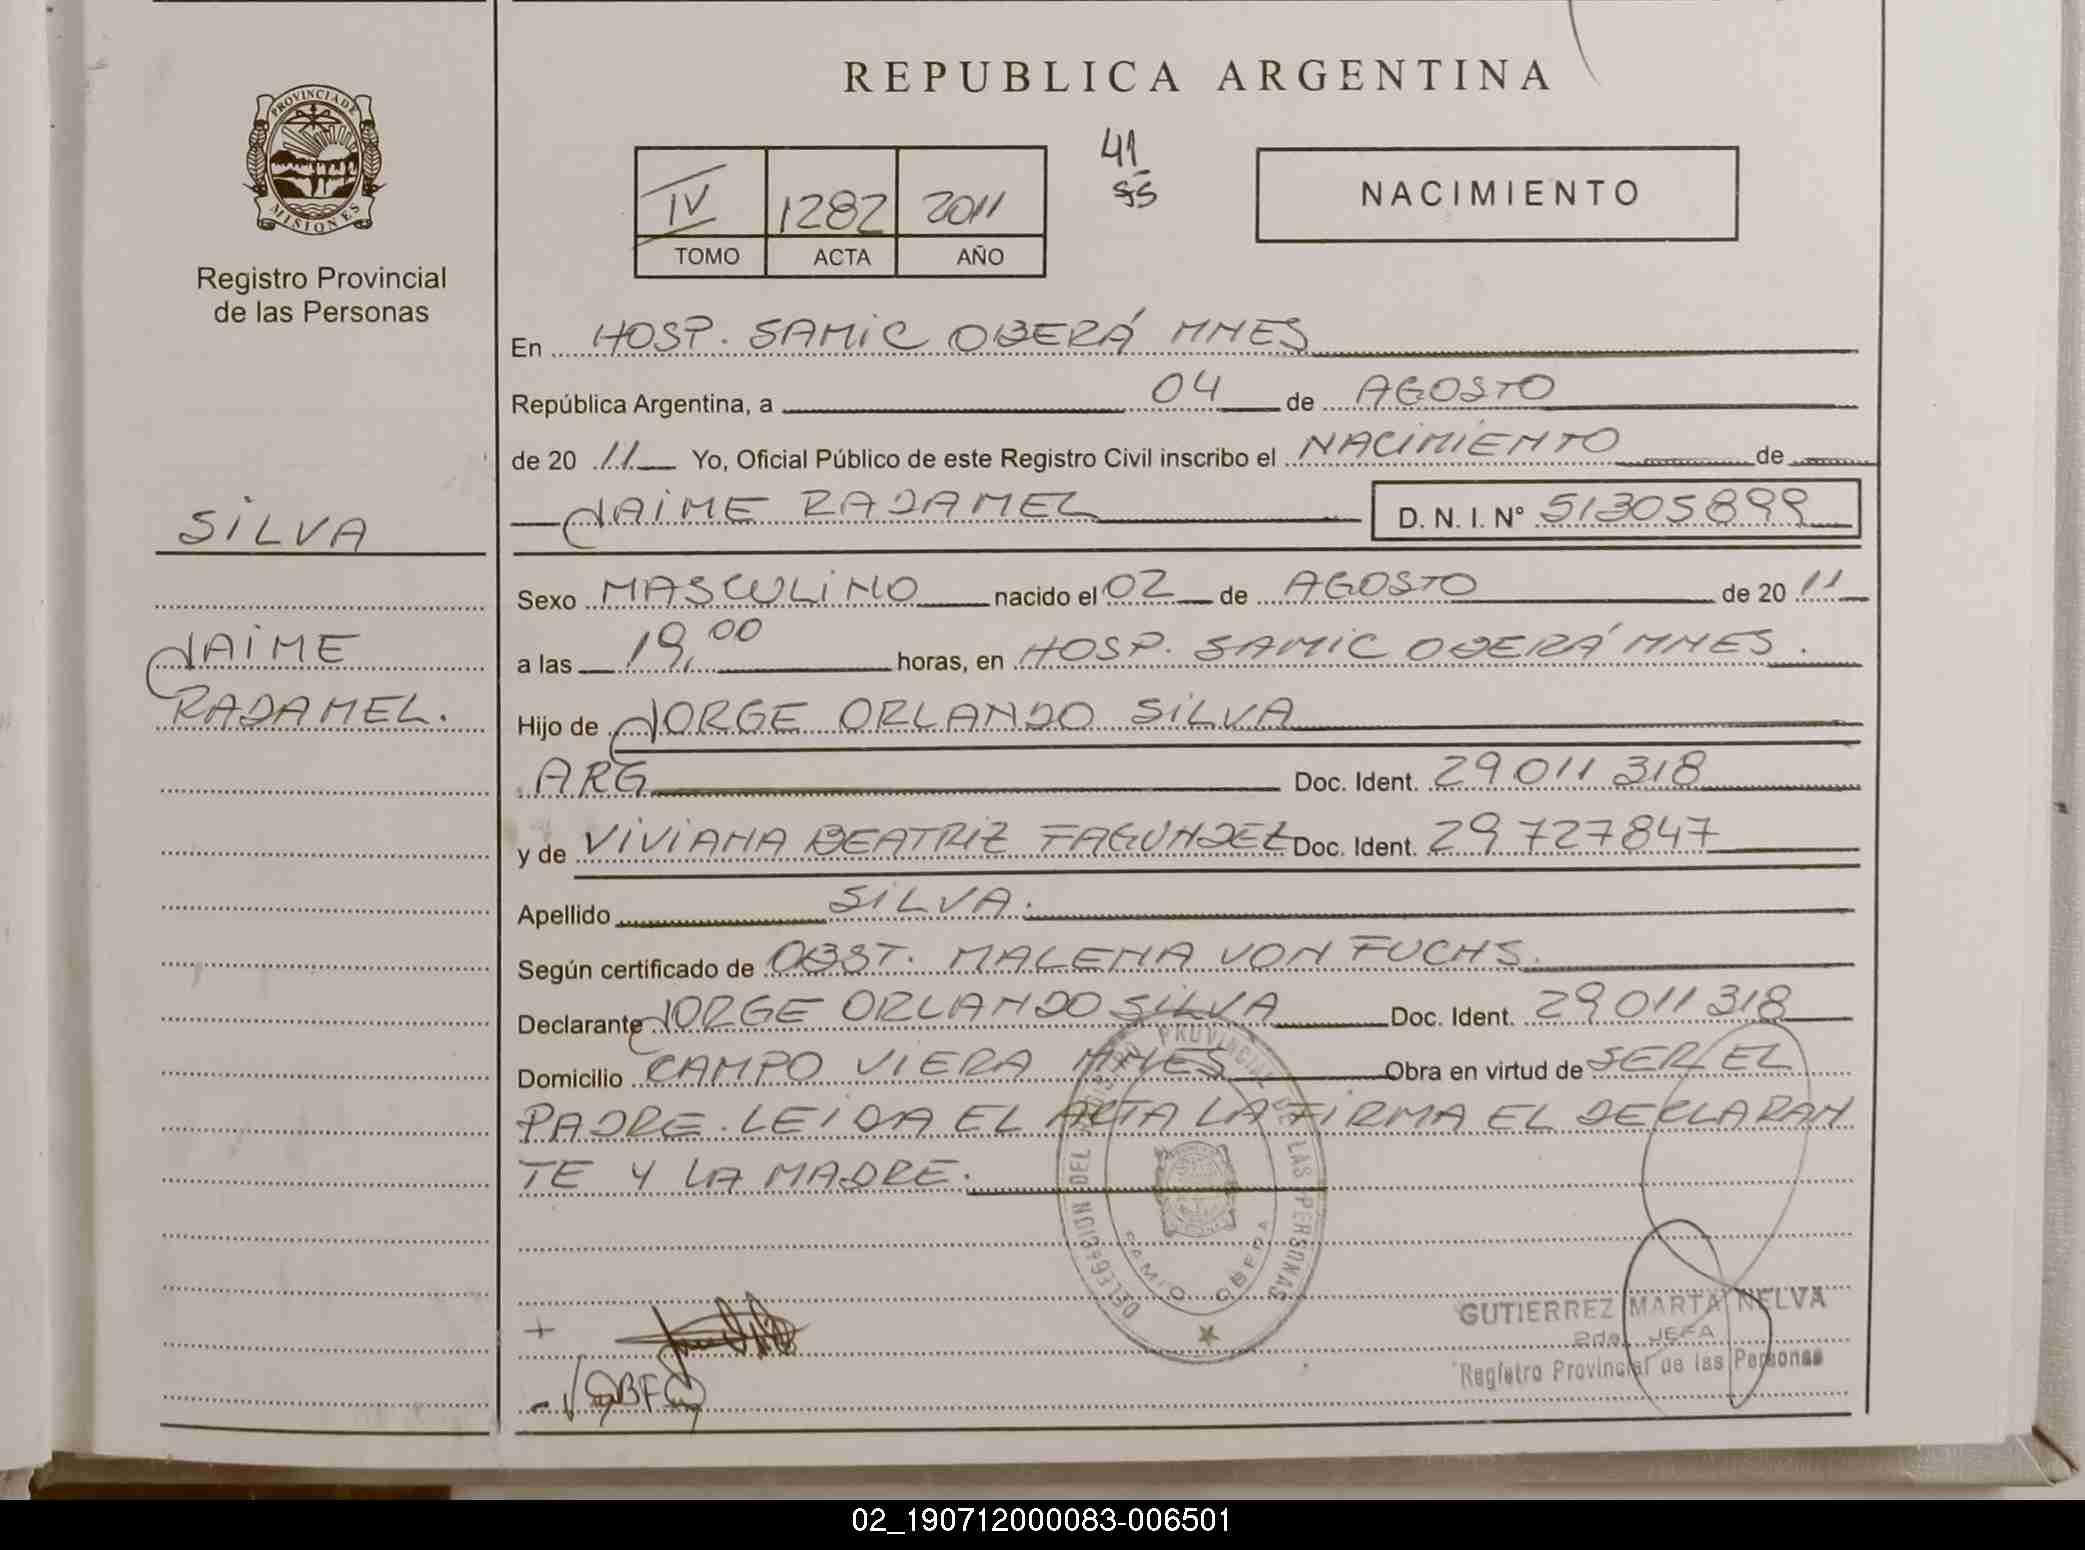 REPUBLICA ARGENTINA
PROVINCIA DE
MISIONES
Registro Provincial
de las Personas
IV 1282 2011
TOMO ACTA AÑO
41
55
NACIMIENTO
En HOSP. SAMIC OBERÁ MNES
República Argentina, a 04 de AGOSTO
de 20 11 Yo, Oficial Público de este Registro Civil inscribo el NACIMIENTO de
JAIME RADAMEL D. N. I. N° 51305899
SILVA
Sexo MASCULINO nacido el 02 de AGOSTO de 20 11
JAIME
a las 19,00 horas, en HOSP. SAMIC OBERÁ MNES.
RADAMEL.
Hijo de JORGE ORLANDO SILVA
ARG Doc. Ident. 29 011 318
y de VIVIANA BEATRIZ FAGUNDEZ Doc. Ident. 29 727847
Apellido SILVA.
Según certificado de OBST. MALENA VON FUCHS.
Declarante JORGE ORLANDO SILVA Doc. Ident. 29 011 318
Domicilio CAMPO VIERA MNES Obra en virtud de SER EL
PADRE. LEIDA EL ACTA LA FIRMA EL DECLARAN
TE Y LA MADRE.
DELEGACION DEL REGISTRO PROVINCIAL DE LAS PERSONAS
SAMIC OBERA
GUTIERREZ MARTA NELVA
2da. JEFA
Registro Provincial de las Personas
02_190712000083-006501